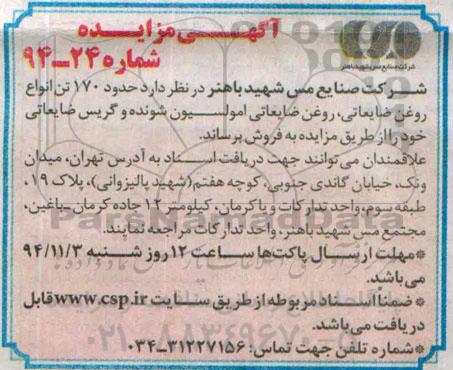 آگهـــی مزایــده
شماره ۲۴ـ۹۴
شرکت صنایع مس شهید باهنر
شرکت صنایع مس شهید باهنر در نظر دارد حدود ۱۷۰ تن انواع
روغن ضایعاتی، روغن ضایعاتی امولسیون شونده و گریس ضایعاتی
خود را از طریق مزایده به فروش برساند.
علاقمندان می‌توانند جهت دریافت اسناد به آدرس تهران، میدان
ونک، خیابان گاندی جنوبی، کوچه هفتم (شهید پالیزوانی)، پلاک ۱۹،
طبقه سوم، واحد تدارکات و یا کرمان، کیلومتر ۱۲ جاده کرمان ـ باغین،
مجتمع مس شهید باهنر، واحد تدارکات مراجعه نمایند.
* مهلت ارسال پاکت‌ها ساعت ۱۲ روز شنبه ۹۴/۱۱/۳
می‌باشد.
* ضمنا اسناد مربوطه از طریق سایت www.csp.ir قابل
دریافت می‌باشد.
* شماره تلفن جهت تماس: ۳۱۲۲۷۱۵۶-۰۳۴
ParsNamadData